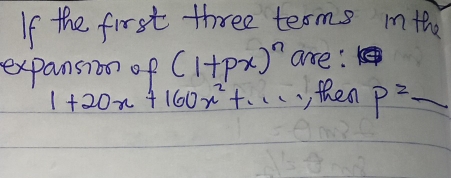 If the first three terms in the
expansion of (1+px)^n are:
1+20x+160x²+...., then p =